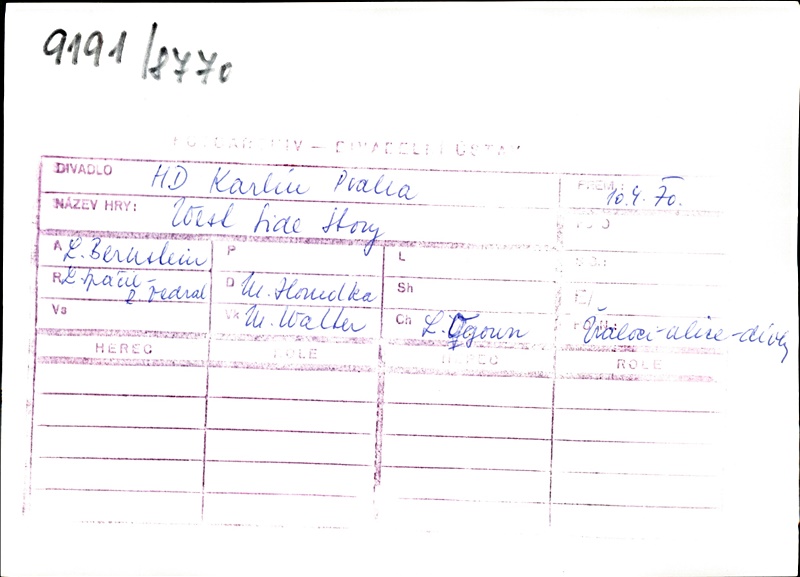 9191/8770
FOTOARCHIV – DIVADELNÍ ÚSTAV
DIVADLO HD Karlín Praha PREM.: 10.4.70.
NÁZEV HRY: West Side Story
A L. Bernstein P L
R L. Spáčil - D M. Homolka Sh
J. Vedral
Vs Vk M. Walter Ch L. Ogoun Žraloci-ulice-dívky
HEREC ROLE HEREC ROLE